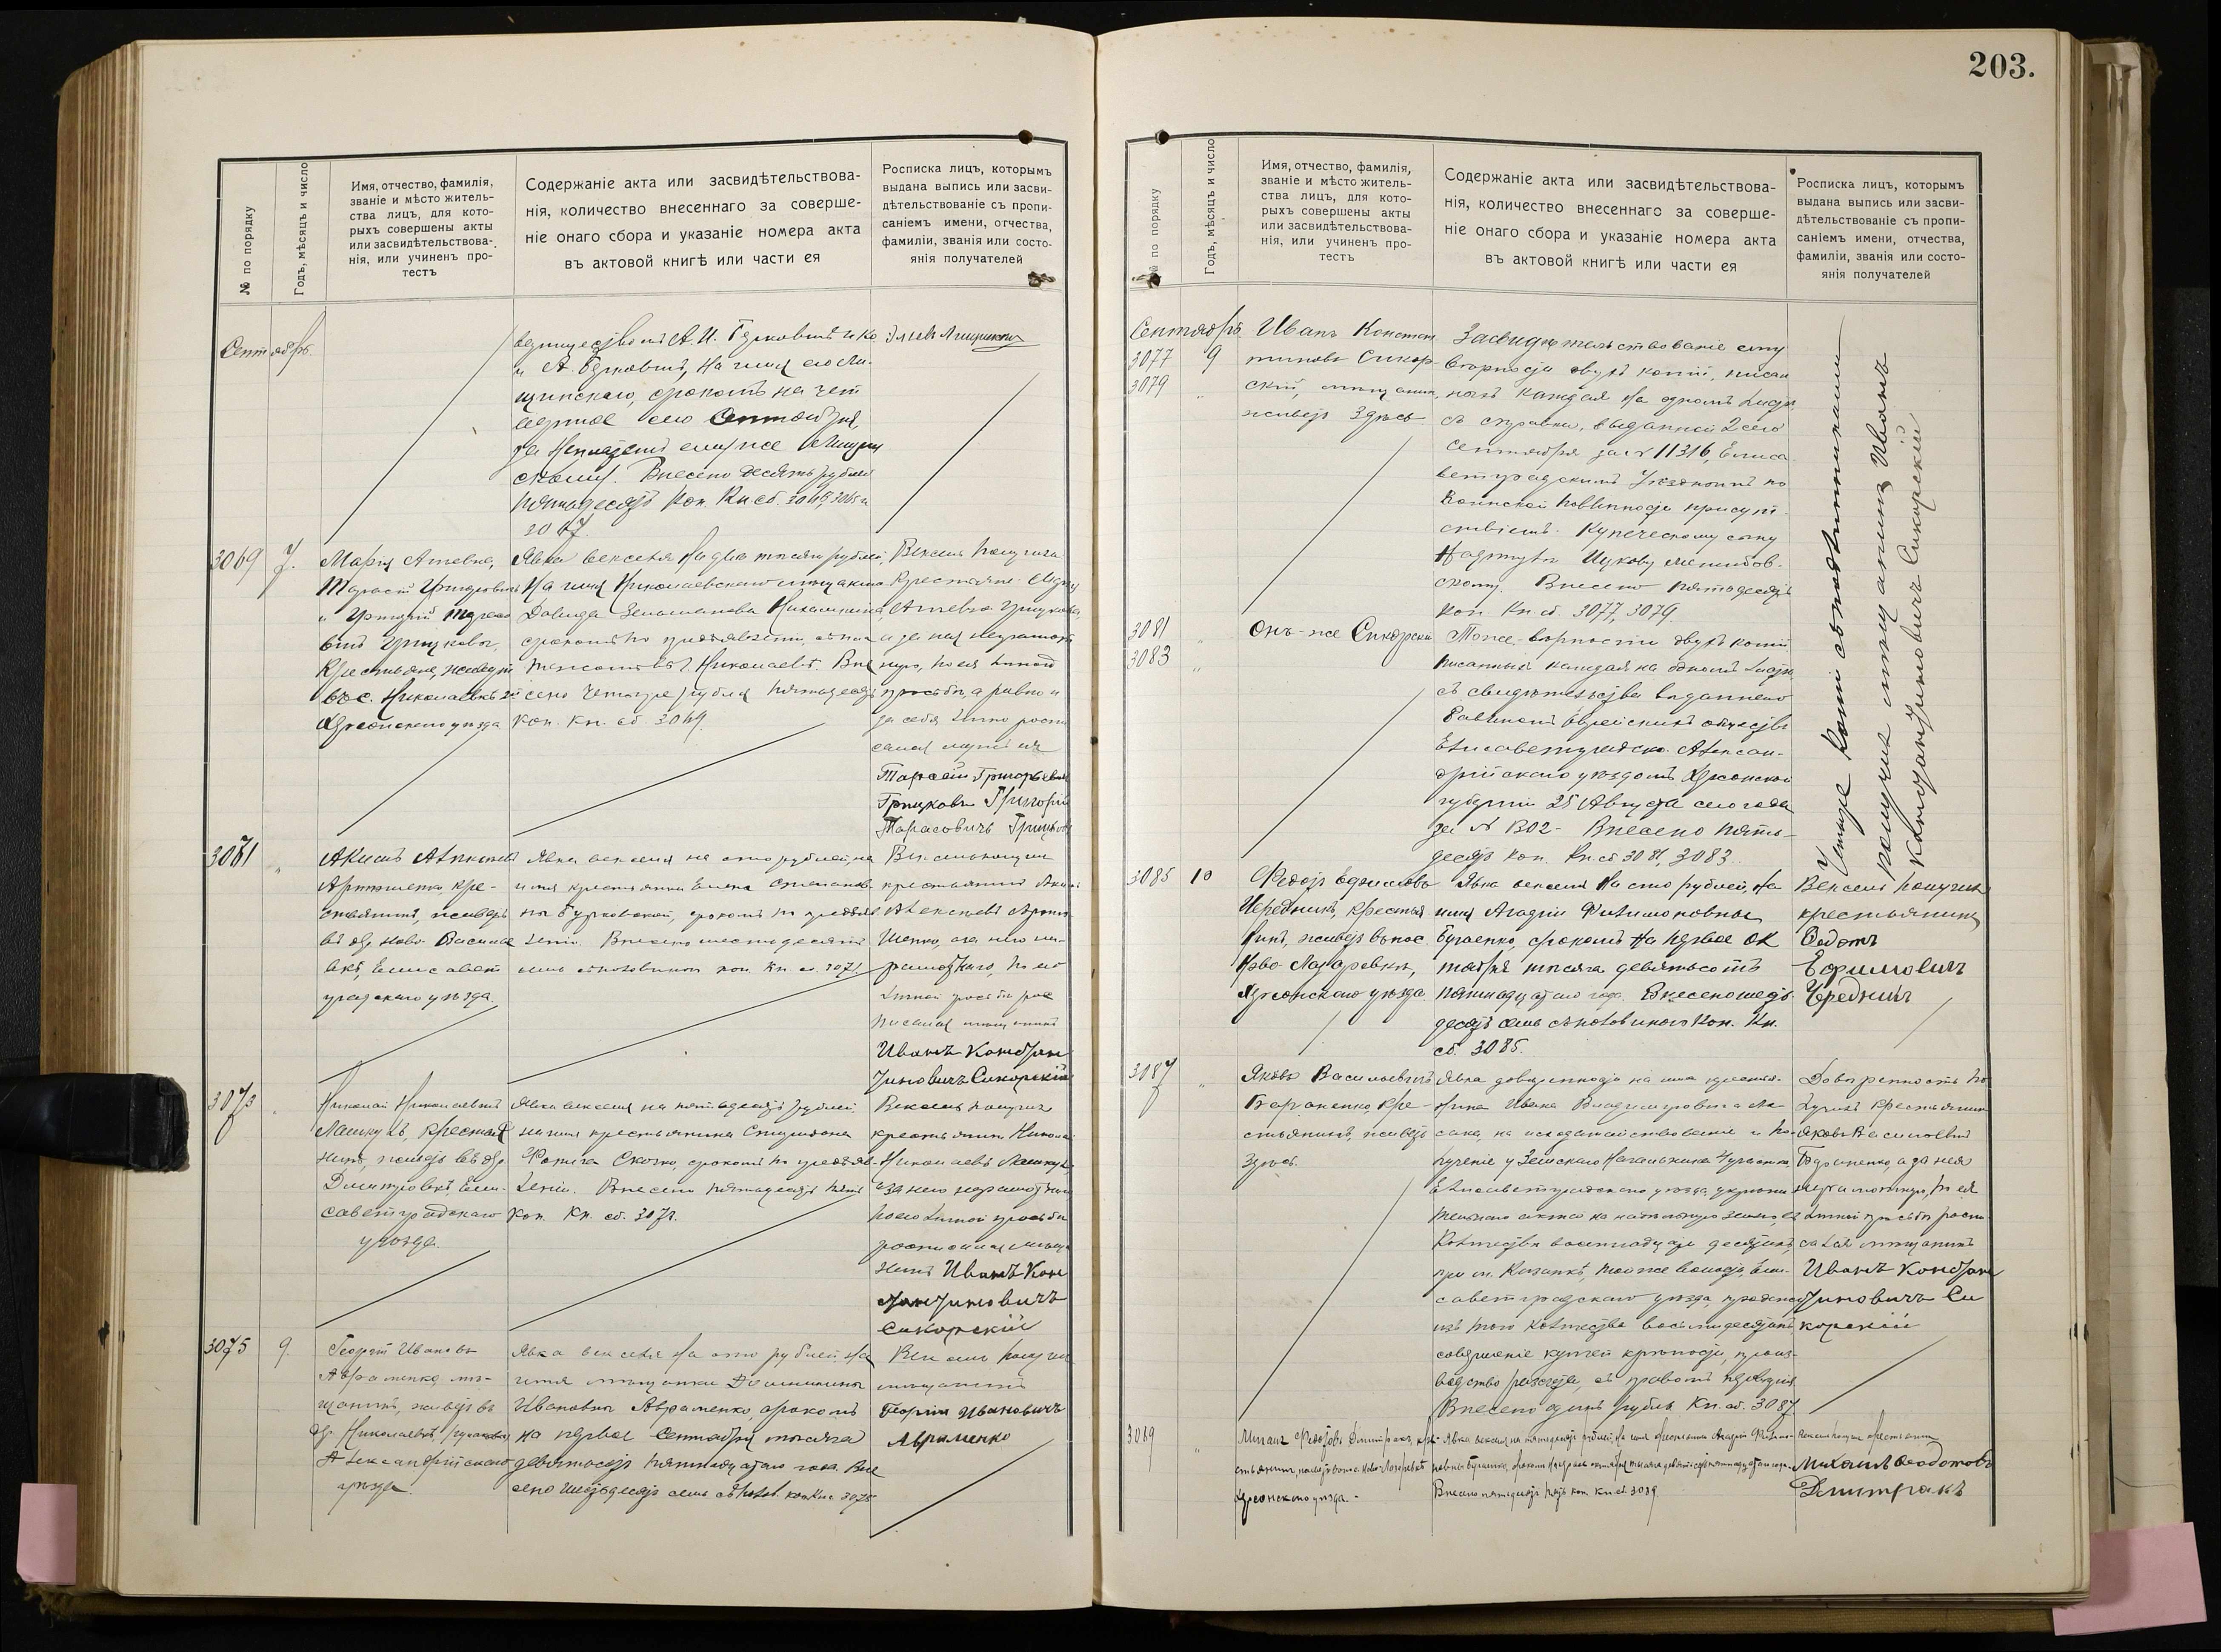 203.
№ по порядку
Годъ, мѣсяцъ и число
Имя, отчество, фамилія,
званіе и мѣсто житель-
ства лицъ, для кото-
рыхъ совершены акты
или засвидѣтельствова-
нія, или учиненъ про-
тестъ
Содержаніе акта или засвидѣтельствова-
нія, количество внесеннаго за соверше-
ніе онаго сбора и указаніе номера акта
въ актовой книгѣ или части ея
Росписка лицъ, которымъ
выдана выпись или засви-
дѣтельствованіе съ пропи-
саніемъ имени, отчества,
фамиліи, званія или состо-
янія получателей
Сентябрь
на имя
срокомъ на чет
вертое сего Сентября,
Внесено десять рублей
пятьдесятъ коп. Кн сб. 3065 и
3067.
3069 7.
Марія
Тарасій Григорьевъ
и Григорій Тарасо
вичъ Грицковы,
крестьяне, живущіе
въ с. Николаевкѣ 2й
Херсонскаго уѣзда
Явка векселя на два тысячи рублей,
на имя Николаевскаго мѣщанина
Давида
срокомъ по предъявленіи,
Николаевѣ. Вне
сено четыре рубля пятьдесятъ
коп. Кн. сб. 3069.
Вексель получила
крестьяне
Грицкова,
а за нея неграмот
ную, по ея личной
просьбѣ, а равно и
за себя лично роспи
сался мужъ ея
Тарасій Григорьевъ
Грицковъ Григорій
Тарасовичъ Грицковъ
3071 "
Акимъ Алексѣевъ
Артюшенко, кре-
стьянинъ, живетъ
въ др. Ново Василье
вкѣ, Елисавет
градскаго уѣзда.
Явка векселя на сто рублей, на
имя крестьянки Елены Степанов
ны Бурковской, срокомъ по предъяв
леніи. Внесено шестьдесятъ
семь съ половиною коп. Кн. сб. 3071.
Вексель получилъ
крестьянинъ Акимъ
Алексѣевъ Артю
шенко, а за него не-
грамотнаго, по его
личной просьбѣ рос
писался мѣщанинъ
Иванъ Констан
тиновичъ Сикорскій
3073 "
Николай Николаевичъ
Лашкулъ, крестья
нинъ, живетъ въ др.
Димитровкѣ, Ели-
саветградскаго
уѣзда.
Явка векселя на пятьдесятъ рублей
на имя крестьянина Спиридона
Фомича срокомъ по предъяв-
леніи. Внесено пятьдесятъ пять
коп. Кн. сб. 3073.
Вексель получилъ
крестьянинъ Николай
Николаевъ Лашкулъ
а за него неграмотнаго
по его личной просьбѣ
росписался мѣща
нинъ Иванъ Кон
стантиновичъ
Сикорскій
3075 9.
Георгій Ивановъ
Авраменко, мѣ-
щанинъ, живетъ въ
др. Николаевкѣ,
Александрійскаго
уѣзда.
Явка векселя на сто рублей, на
имя мѣщанки Домникіи
Ивановны Авраменко, срокомъ
на первое Сентября тысяча
девятьсотъ пятнадцатаго года. Вне
сено шестьдесятъ семь съ полов. коп Кн. 3075
Вексель получилъ
мѣщанинъ
Георгій Ивановичъ
Авраменко
№ по порядку
Годъ, мѣсяцъ и число
Имя, отчество, фамилія,
званіе и мѣсто житель-
ства лицъ, для кото-
рыхъ совершены акты
или засвидѣтельствова-
нія, или учиненъ про-
тестъ
Содержаніе акта или засвидѣтельствова-
нія, количество внесеннаго за соверше-
ніе онаго сбора и указаніе номера акта
въ актовой книгѣ или части ея
Росписка лицъ, которымъ
выдана выпись или засви-
дѣтельствованіе съ пропи-
саніемъ имени, отчества,
фамиліи, званія или состо-
янія получателей
Сентябрь
3077 9
3079 "
Иванъ Констан
тиновъ Сикор-
скій, мѣщанинъ,
живетъ здѣсь
Засвидѣтельствованіе
вѣрности двухъ копій, писан
ныхъ каждая на одномъ листѣ
съ справки, выданной 2 сего
Сентября за № 11316, Елиса
ветградскимъ Уѣзднымъ по
воинской повинности присут
ствіемъ Купеческому сыну
Внесено пятьдесятъ
коп. Кн. сб. 3077, 3079.
3081 "
3083 "
Онъ-же Сикорскій
Тоже - вѣрности двухъ копій
писанныхъ каждая на одномъ листѣ
съ свидѣтельства выданнаго
Равиномъ еврейскихъ обществъ
Елисаветградско Алексан-
дрійскаго уѣздовъ Херсонской
губерніи 25 Августа сего года
за № 1302 - Внесено пять-
десятъ коп. Кн сб 3081, 3083.
Четыре копіи съ подлинниками
получилъ мѣщанинъ Иванъ
Константиновичъ Сикорскій
3085 10
Федотъ Ефимовъ
Чередникъ, крестья
нинъ, живетъ въ пос.
Ново-Лазаревкѣ,
Херсонскаго уѣзда.
Явка векселя на сто рублей, на
имя Агафіи Филимоновны
Бугаенко, срокомъ на первое ок
тября тысяча девятьсотъ
пятнадцатаго года. Внесено шесть
десятъ семь съ половиною коп. Кн.
сб. 3085.
Вексель получилъ
крестьянинъ
Федотъ
Ефимовичъ
Чередникъ
3087 "
Яковъ Васильевичъ
кре-
стьянинъ, живетъ
здѣсь.
Явка довѣренности на имя крестья-
нина Ивана Владиміровича
на исходатайствованіе и по-
лученіе у Земскаго Начальника участка,
Елисаветградскаго уѣзда, укрѣпи
тельнаго акта на надѣльную землю, въ
количествѣ восемнадцати десятинъ,
при м. Казанкѣ, той же волости, Ели-
саветградскаго уѣзда, продажу
изъ того количества восьми десятинъ
совершеніе купчей крѣпости, произ-
водство расчета, съ правомъ передовѣрія
Внесено одинъ рубль. Кн. сб. 3087
Довѣренность по
лучилъ крестьянинъ
Яковъ Васильевичъ
а за него
неграмотнаго, по его
личной просьбѣ роспи
сался мѣщанинъ
Иванъ Констан
тиновичъ Си
корскій
3089 "
Михаилъ Федотовъ Димитракъ, кре
стьянинъ, живетъ въ пос. Ново-Лазаревкѣ
Херсонскаго уѣзда. -
Явка векселя на пятьдесятъ рублей, на имя крестьянки Агафіи Филимо-
новны Бугаенко, срокомъ на первое октября тысяча девятьсотъ пятнадцатаго года.
Внесено пятьдесятъ пять коп. Кн сб. 3089.
Вексель получилъ крестьянинъ
Михаилъ Феодотовъ
Димитракъ